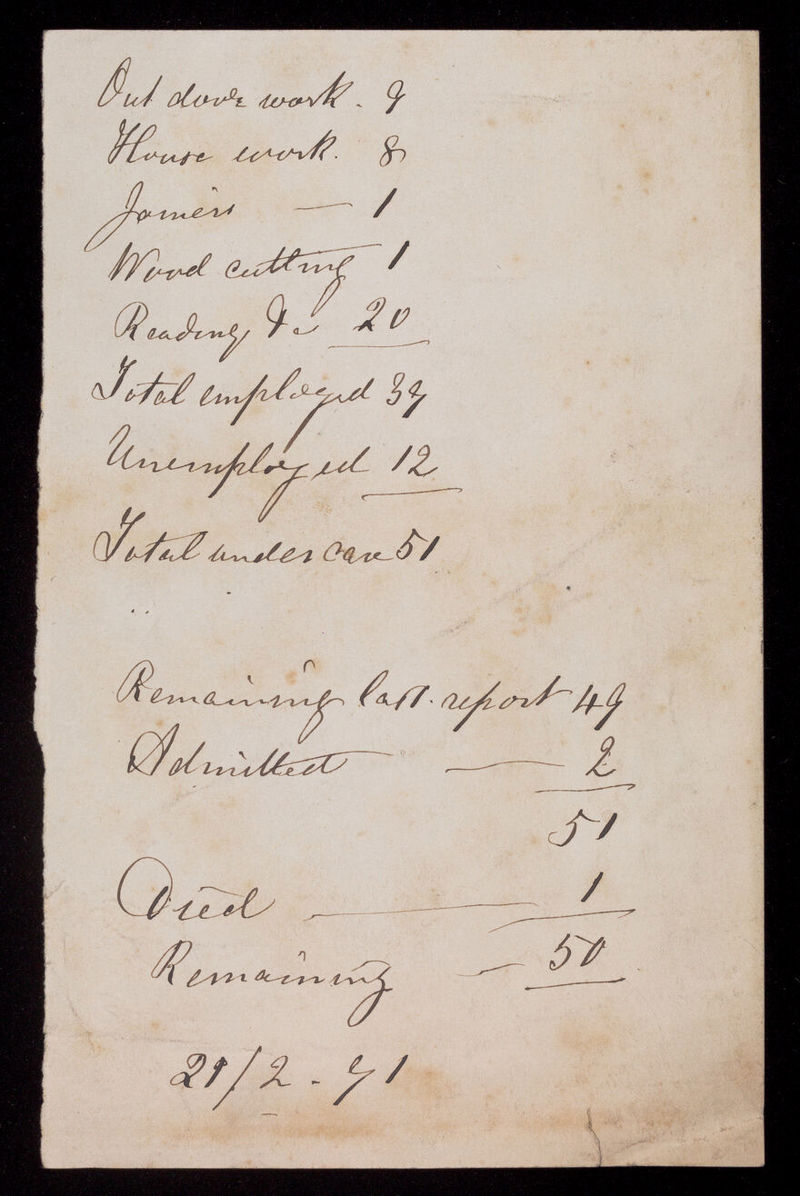 Out door work. 9
House work. 8
Joiners — 1
Wood cutting 1
Reading &c 20
Total employed 39
Unemployed 12
Total under care 51
Remaining last report 49
Admitted — 2
51
Died — 1
Remaining — 50
21/2-71